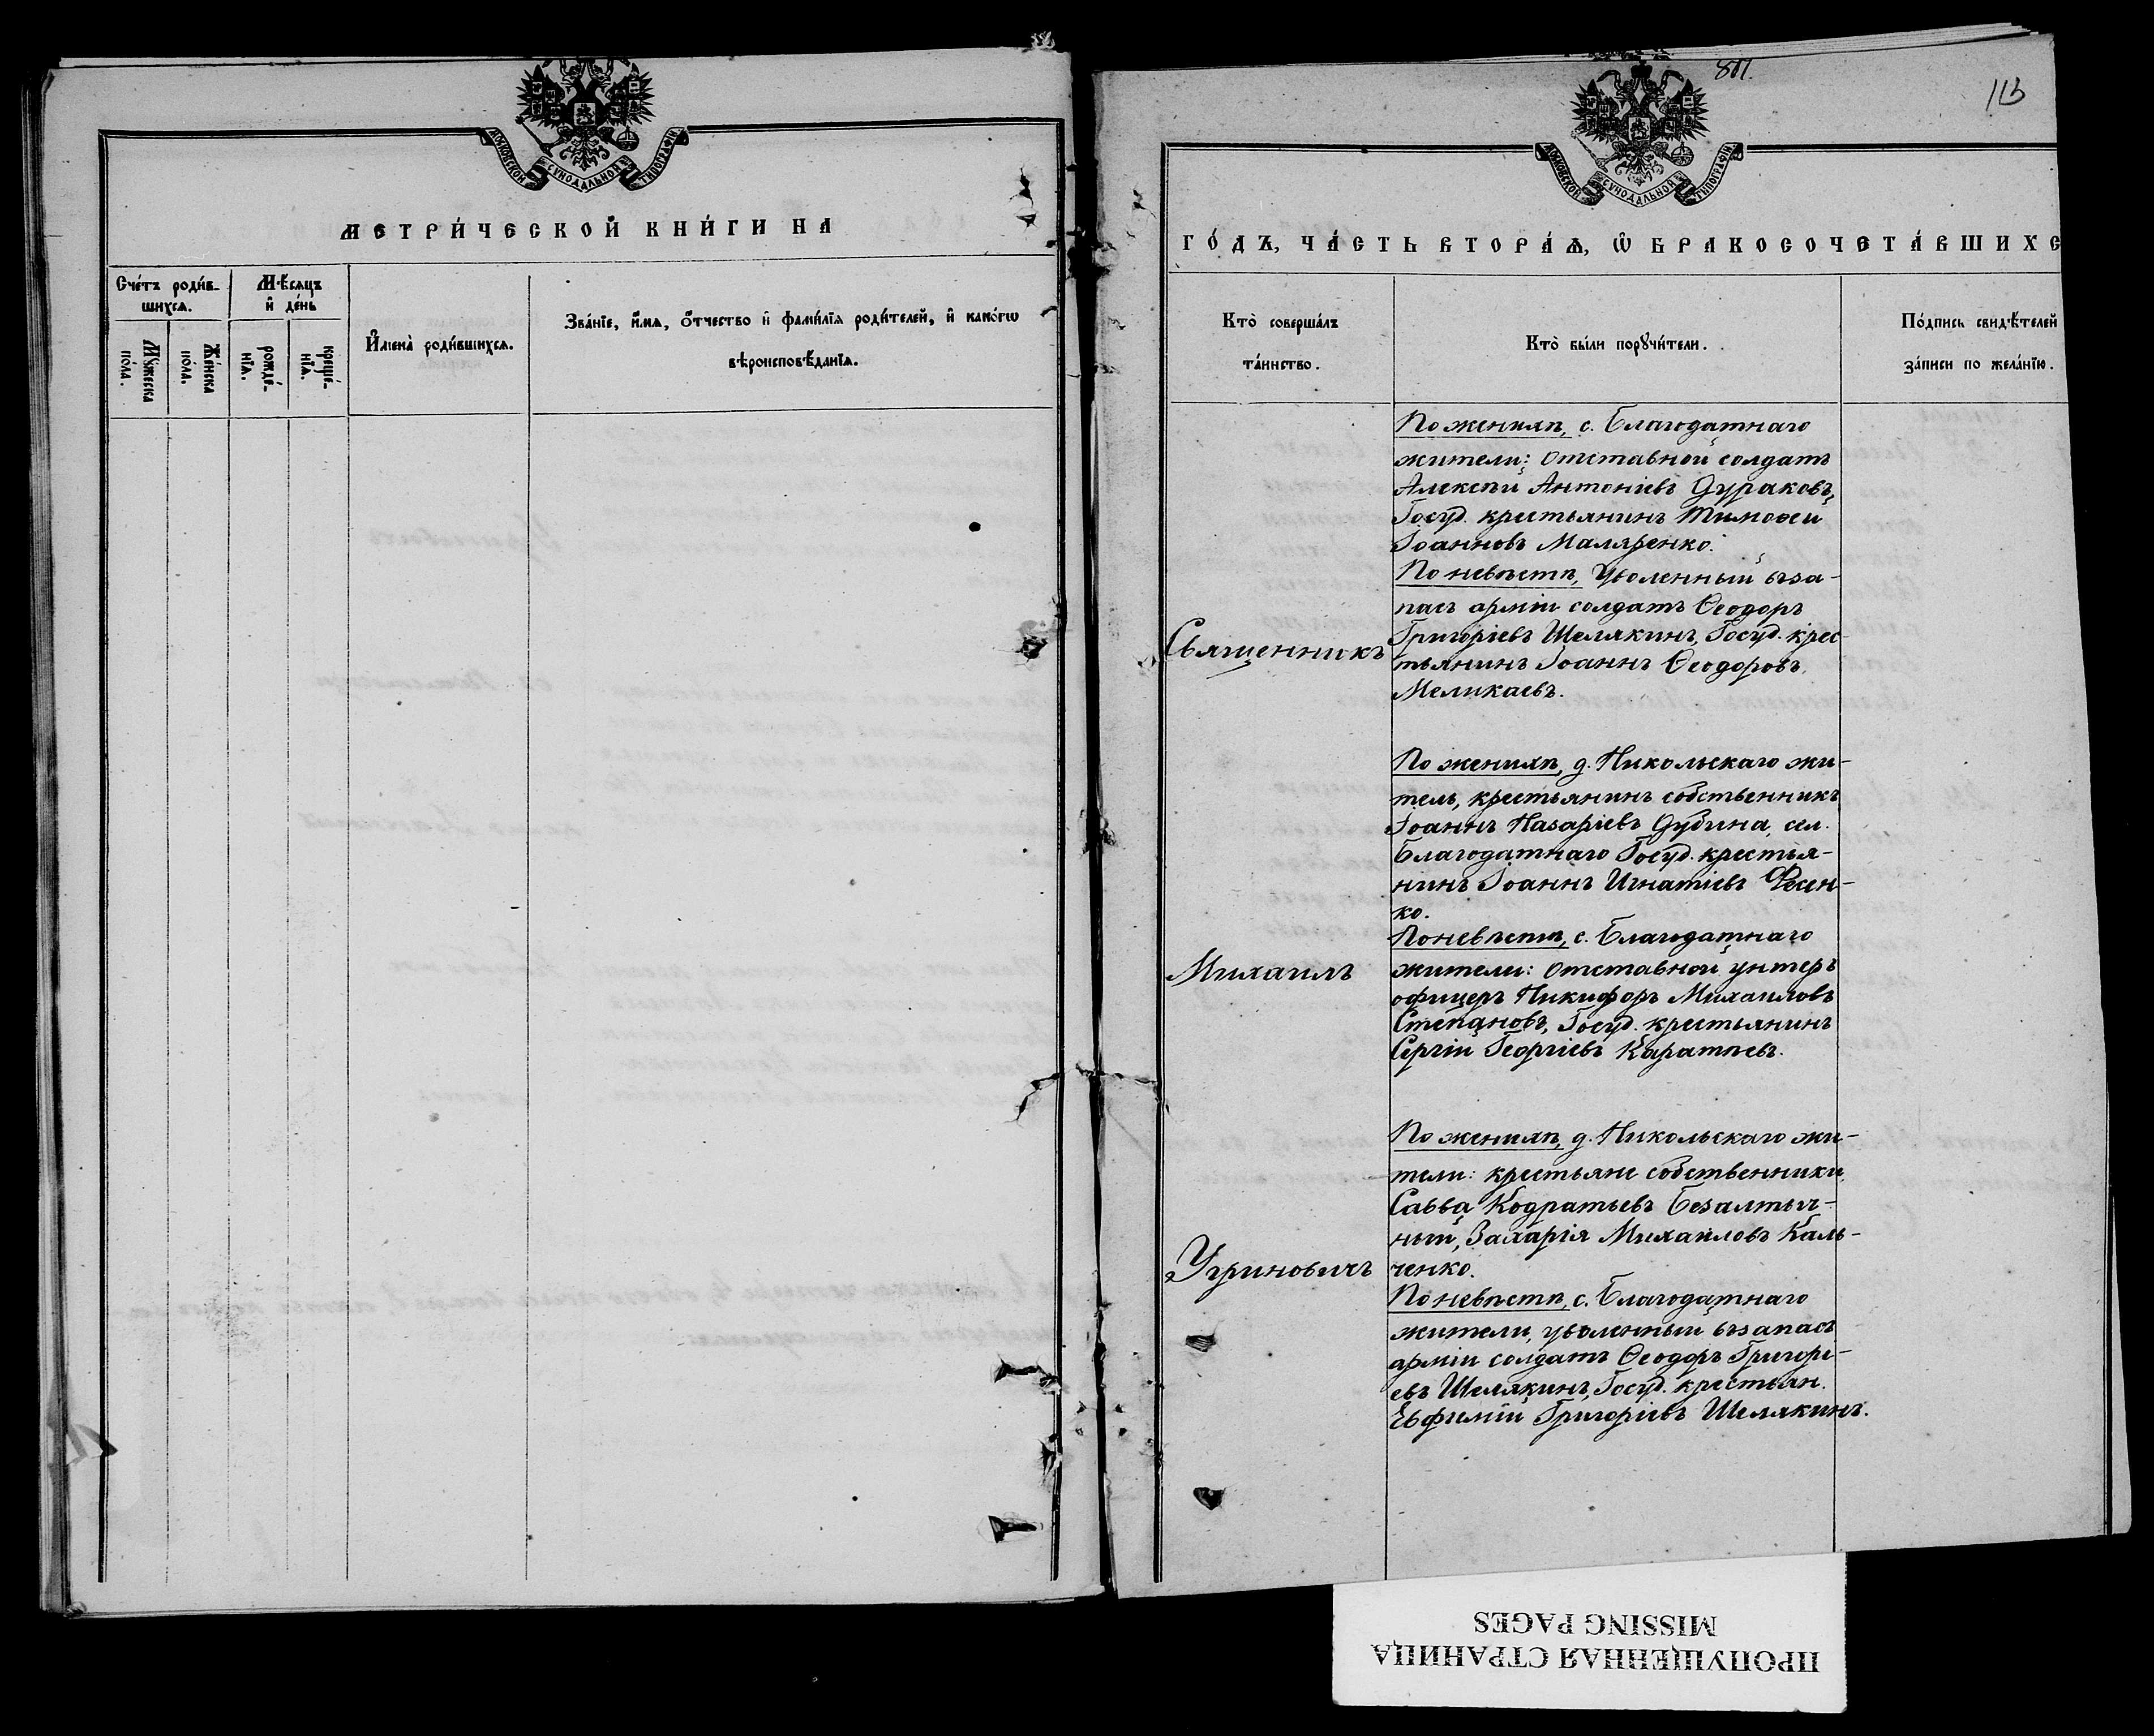 МОСКОВСКОЙ СѴНОДАЛЬНОЙ ТИПОГРАФІИ
МЕТРИ́ЧЕСКОЙ КНИ́ГИ НА
Сче́тъ роди́в-
шихсѧ.
Мѣ́сяцъ
и҆ де́нь
И҆мена̀ роди́вшихсѧ.
Зва́нїе, и҆́мѧ, ѻ҆́тчество и҆ фами́лїѧ роди́телей, и҆ како́гѡ
вѣроисповѣ́данїѧ.
Мꙋ́жеска
по́ла.
Же́нска
по́ла.
рожде́-
нїѧ.
креще́-
нїѧ.
113
МОСКОВСКОЙ СѴНОДАЛЬНОЙ ТИПОГРАФІИ
ГО́ДЪ, ЧА́СТЬ ВТОРА́Ѧ, Ѡ҆ БРАКОСОЧЕТА́ВШИХС
Кто̀ соверша́лъ
та́инство.
Кто̀ бы́ли порꙋчи́тели.
По́дпись свидѣ́телей
за́писи по жела́нїю.
По женихѣ, с. Благодатнаго
жители: отставной солдатъ
Алексѣй Антоніевъ Дураковъ,
Госуд. крестьянинъ Тимоѳей
Іоанновъ Маляренко.
По невѣстѣ, Уволенный въ за-
пасъ арміи солдатъ Ѳеодоръ
Григоріевъ Шелякинъ, Госуд. крес-
тьянинъ Іоаннъ Ѳеодоровъ
Меликаевъ.
Священникъ
По женихѣ, д. Никольскаго жи-
тель, крестьянинъ собственникъ
Іоаннъ Назаріевъ Дубина, сел.
Благодатнаго Госуд. крестья-
нинъ Іоаннъ Игнатіевъ Фесен-
ко.
По невѣстѣ, с. Благодатнаго
жители: отставной унтеръ
офицеръ Никифоръ Михаиловъ
Степановъ, Госуд. крестьянинъ
Сергій Георгіевъ Каратѣевъ.
Михаилъ
По женихѣ, д. Никольскаго жи-
тели: крестьяне собственники
Савва Кодратьевъ Безалтыч-
ный, Захарія Михаиловъ Каль-
ченко.
По невѣстѣ, с. Благодатнаго
жители, уволенный въ запасъ
арміи солдатъ Ѳеодоръ Григорі-
евъ Шелякинъ, Госуд. крестьян.
Евфимій Григоріевъ Шелякинъ.
Угриновичъ
ПРОПУЩЕННАЯ СТРАНИЦА
MISSING PAGES